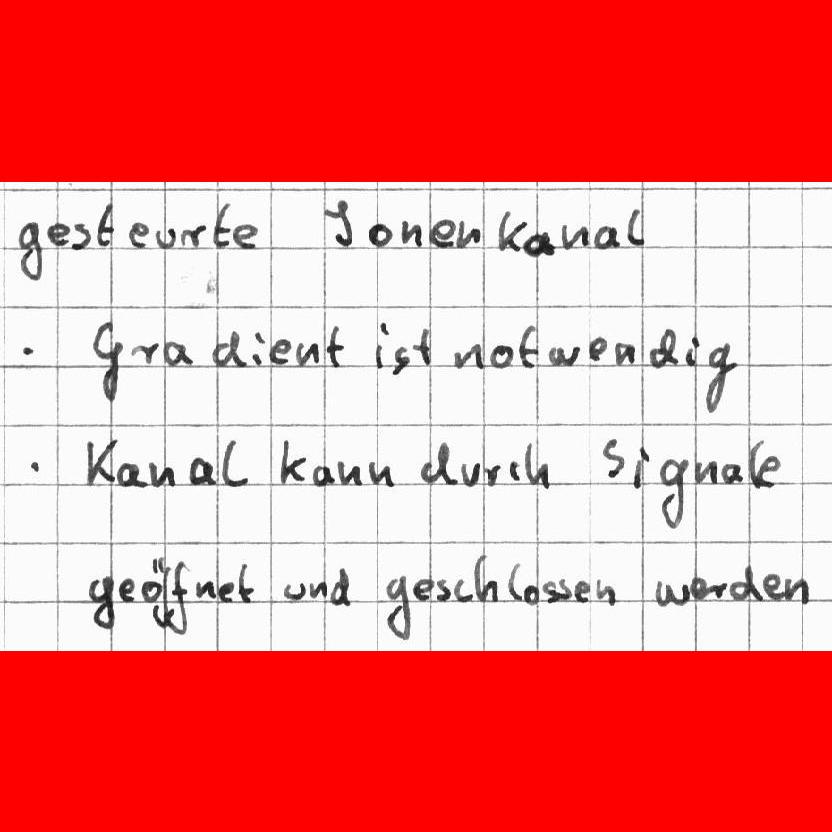 gesteurte Ionenkanal
· Gradient ist notwendig
· Kanal kann durch Signale
geöffnet und geschlossen werden